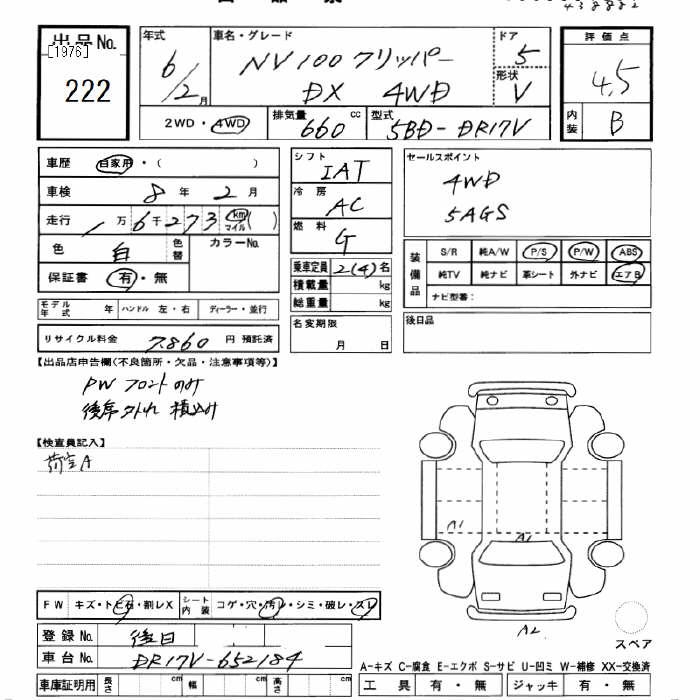 出品No.
[1976]
222
年式
6/2月
車名・グレード
NV100クリッパー
DX 4WD
ドア
5
形状
V
評価点
4.5
内装
B
2WD・4WD
排気量 660 cc
型式 5BD-DR17V
車歴 自家用・( )
車検 8年 2月
走行 1万6千273 km マイル ( )
色 白 色替 カラーNo.
保証書 有・無
モデル年式 年 ハンドル 左・右 ディーラー・並行
リサイクル料金 7,860 円 預託済
シフト
IAT
冷房
AC
燃料
G
乗車定員 2(4)名
積載量 kg
総重量 kg
名変期限
月 日
セールスポイント
4WD
5AGS
装備品
S/R 純A/W P/S P/W ABS
純TV 純ナビ 革シート 外ナビ エアB
ナビ型番:
後日品
【出品店申告欄(不良箇所・欠品・注意事項等)】
PW フロントのみ
後席外れ 積込み
【検査員記入】
荷室A
A1
A1
A2
スペア
FW キズ・トビ石・割レX シート内装 コゲ・穴・汚レ・シミ・破レ・スレ
登録No. 後日
車台No. DR17V-652184
車庫証明用 長さ cm 幅 cm 高さ cm
A-キズ C-腐食 E-エクボ S-サビ U-凹ミ W-補修 XX-交換済
工具 有・無 ジャッキ 有・無